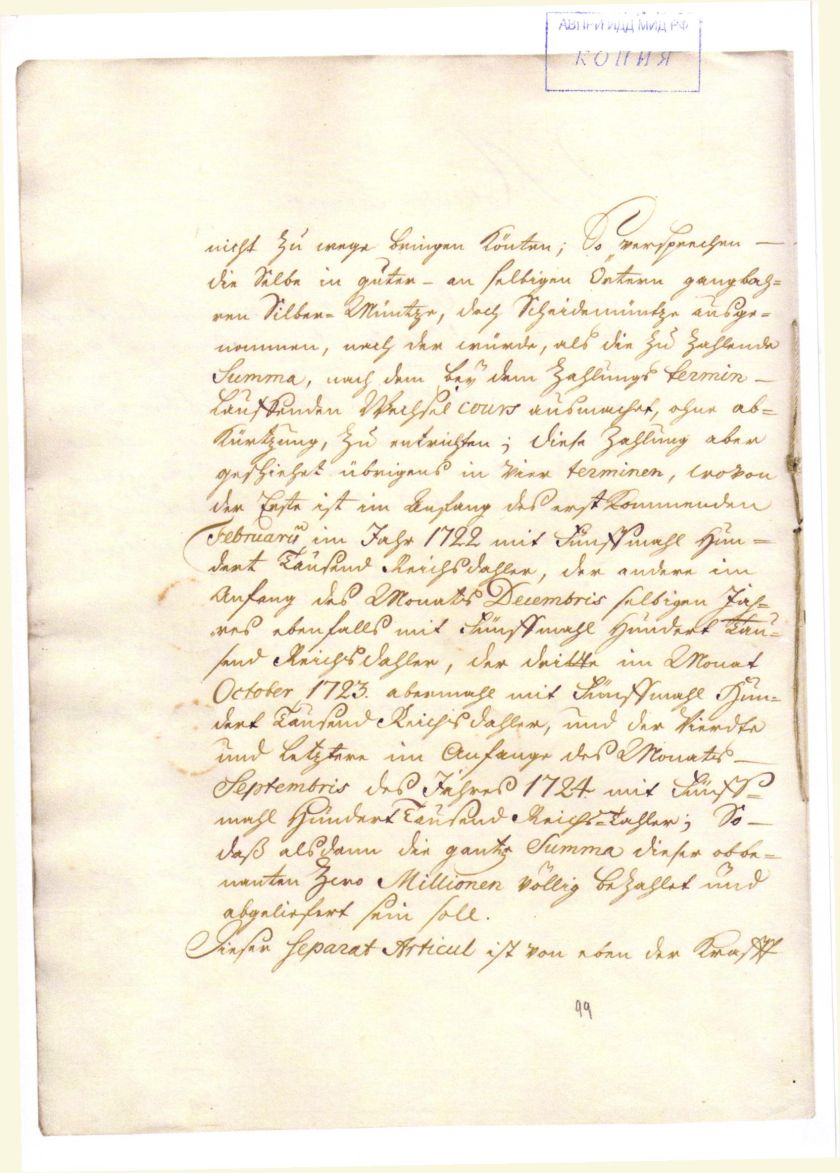 АВПРИ ИДД МИД РФ
КОПИЯ
nicht zu wege bringen könten; So versprechen —
die Selbe in guter – an selbigen Örtern gangbah-
ren Silber-Müntze, doch Scheidemüntze ausge-
nommen, nach der würde, als die zu zahlende
Summa, nach dem beÿ dem Zahlungs termin –
lauffenden Wechsel cours ausmachet, ohne ab-
kürtzung, zu entrichten; diese Zahlung aber
geschiehet übrigens in vier terminen, wovon
der Erste ist im Anfang des erst kommenden
Februarii im Jahr 1722 mit Fünffmahl Hun-
dert Tausend Reichsdahler, der andere im
Anfang des Monats Decembris selbigen Jah-
res ebenfalls mit Fünffmahl Hundert Tau-
send Reichsdahler, der dritte im Monat
October 1723. abermahl mit Fünffmahl Hun-
dert Tausend Reichsdahler, und der Vierdte
und Letztere im Anfange des Monats —
Septembris des Jahres 1724 mit Fünff-
mahl Hundert Tausend Reichs-Tahler; So –
daß alsdann die gantze Summa dieser obbe-
nanten Zwo Millionen völlig bezahlet und
abgeliefert sein soll.
Dieser Separat Articul ist von eben der Krafft
99